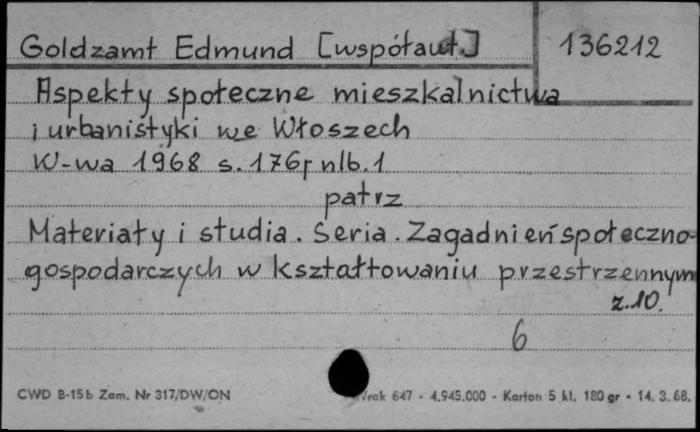 Goldzamt Edmund [współaut.]
136212
Aspekty społeczne mieszkalnictwa
i urbanistyki we Włoszech
W-wa 1968 s. 176, nlb. 1
patrz
Materiały i studia. Seria. Zagadnień społeczno-
gospodarczych w kształtowaniu przestrzennym
z. 10.
6
CWD B-15b Zam. Nr 317/DW/ON
647 - 4.945.000 - Karton 5 kl. 180 gr - 14. 3. 68.